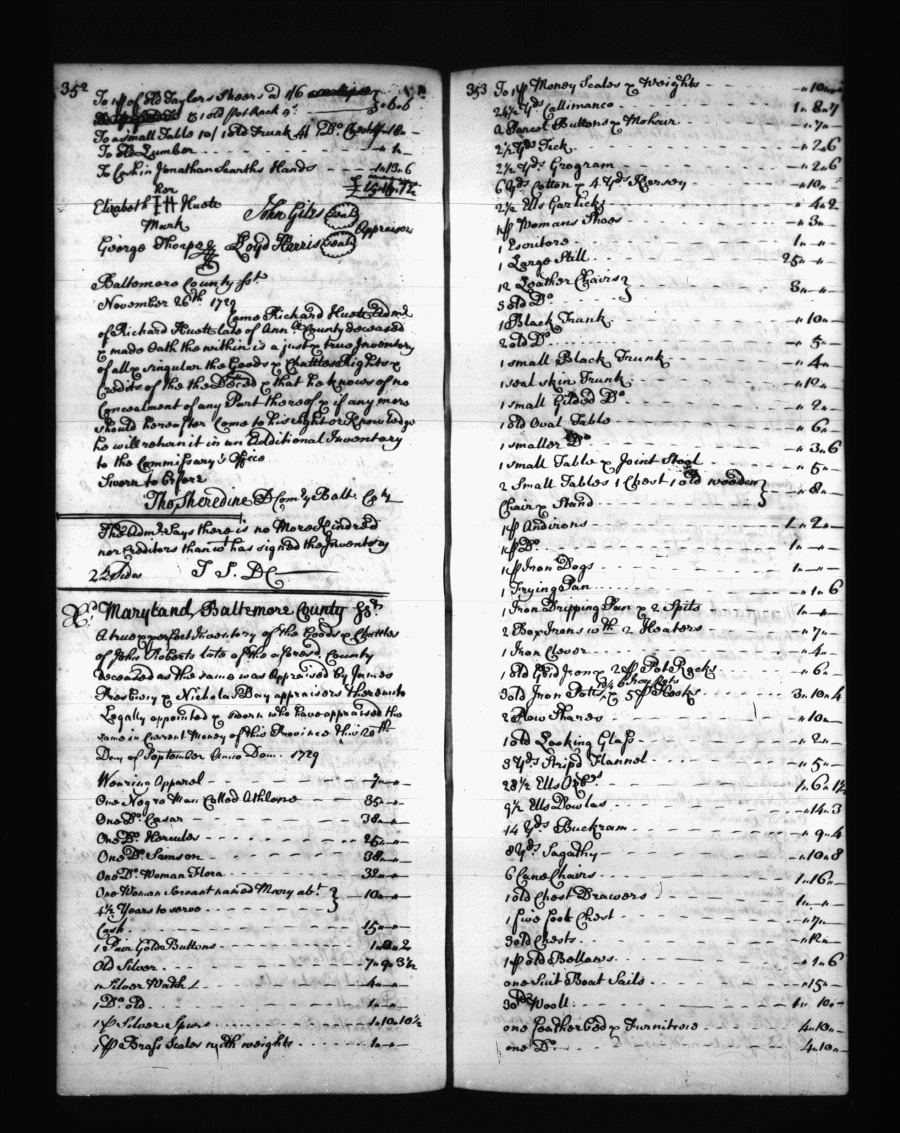 352
To 1 pr of old Taylors Sheers @ 1/6
To 1 old pot Rack
0.6.6
To a small Table 10/ 1 old Trunk 4/ 1 Do Chest
To old Lumber
To Cash in Jonathan Hands 1.13.6
her
Elizabeth H Huett
Mark
John Giles Seal
Appraisers
George Thorpe Loyd Harris Seal
Baltemore County Sst.
November 26th 1729
Came Richard Huett Admr
of Richard Huett late of Ann Al County deceased
& made Oath the within is a just & true Inventory
of all & singular the Goods & Chattles Rights &
Credits of the the Deced & that he knows of no
Concealment of any Part thereof & if any more
should hereafter Come to his sight or Knowledge
he will return it in an Additional Inventory
to the Commissary's Office
Sworn to before
Tho. Sheredine D Comry Balt. Coty
The Admr Says there is no More Kindred
nor Creditors than wt has signed the Inventory
2½ Sides T S. DC
Maryland, Baltemore County Sst.
A true & perfect Inventory of the Goods & Chattles
of John Roberts late of the aforesd. County
deceased as the same was Appraised by James
Presbury & Nicholas Day appraisers thereunto
Legally appointed & sworn who have appraised the
same in Current Money of this Province this 20th
Day of September Anno Dom. 1729
Wearing Apparel 7 " "
One Negro Man Called Athlone 35 " "
One Do Cesar 38 " "
One Do. Hercules 25 " "
One Do. Samson 38 " "
One Do. Woman Flora 32 " "
One Woman Servant named Mary abt.
4½ Years to serve 10 " "
Cash 15 " "
1 Pair Gold Buttons
Old Silver 7 " 9 " 3½
1 Silver Watch 4 " "
1 Do. old 1 " "
1 pr Silver Spurs 1 " 10 " 10½
1 pr Brass Scales with weights 1 " "
353
To 1 pr Money Scales & Weights " 10 "
24½ Yds Callimanco 1 " 8 " 7
A Parcel Buttons & Mohair " 7 "
2½ Yds Tick " 2 " 6
2½ Yds. Grogram " 2 " 6
6 Yds Cotton & 4 Yds Kersey " 10 "
2½ Ells Garlicks " 4 " 2
1 pr Womans Shoes " 3 "
1 Escritore 1 " "
1 Large Still 25 " "
12 Leather Chairs
3 old Do. 3 " "
1 Black Trunk " 10 "
2 old Do. " 5 "
1 small Black Trunk " 4 "
1 seal skin Trunk " 12 "
1 small Gilded Do " 2 "
1 old Oval Table " 6 "
1 smaller Do " 3 " 6
1 small Table & Joint Stool " 5 "
2 Small Tables 1 Chest 1 old wooden
Chair & Stand " 8 "
1 pr Andirons 1 " 2 "
1 pr Do. 1 " "
1 pr Iron Dogs 1 " "
1 Frying Pan " 1 " 6
1 Iron Dripping Pan & 2 Spits 1 " "
2 Box Irons wth 2 Heaters " 7 "
1 Iron Clever " 4 "
1 old Grid Iron & 2 pr Pot Racks " 6 "
3 old Iron Potts & 5 pr Hooks 3 " 10 " 4
2 Plow Shares " 10 "
1 old Looking Glass " 2 "
3 Yds Stripd Flannel " 5 "
28½ Ells Ozbgs 1 " 6 " 1½
9½ Ells Dowlas " 14 " 3
14 Yds Buckram " 9 " 4
8 Yds. Sagathy " 10 " 8
6 Cane Chairs 1 " 16 "
1 old Chest Drawers 1 " "
1 five foot Chest " 7 "
3 old Chests " 12 "
1 pr old Bellows " 1 " 6
one Suit Boat Sails " 15 "
30 lb Wooll 1 " 10 "
one feather bed & Furniture 4 " 10 "
one Do. 4 " 10 "